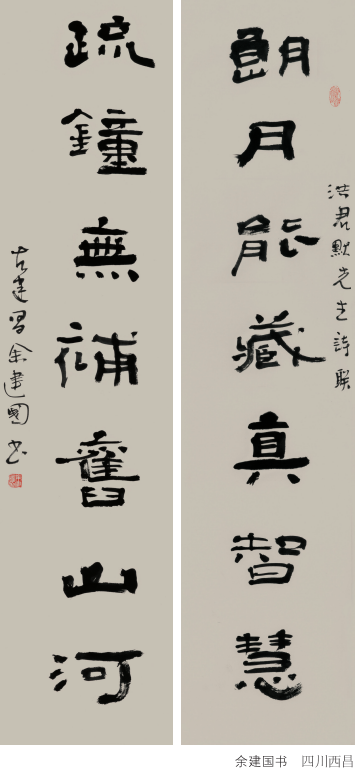 洪君默先生詩聯
朗月能藏真智慧
疏鐘無補舊山河
古建昌余建國书
余建国书 四川西昌